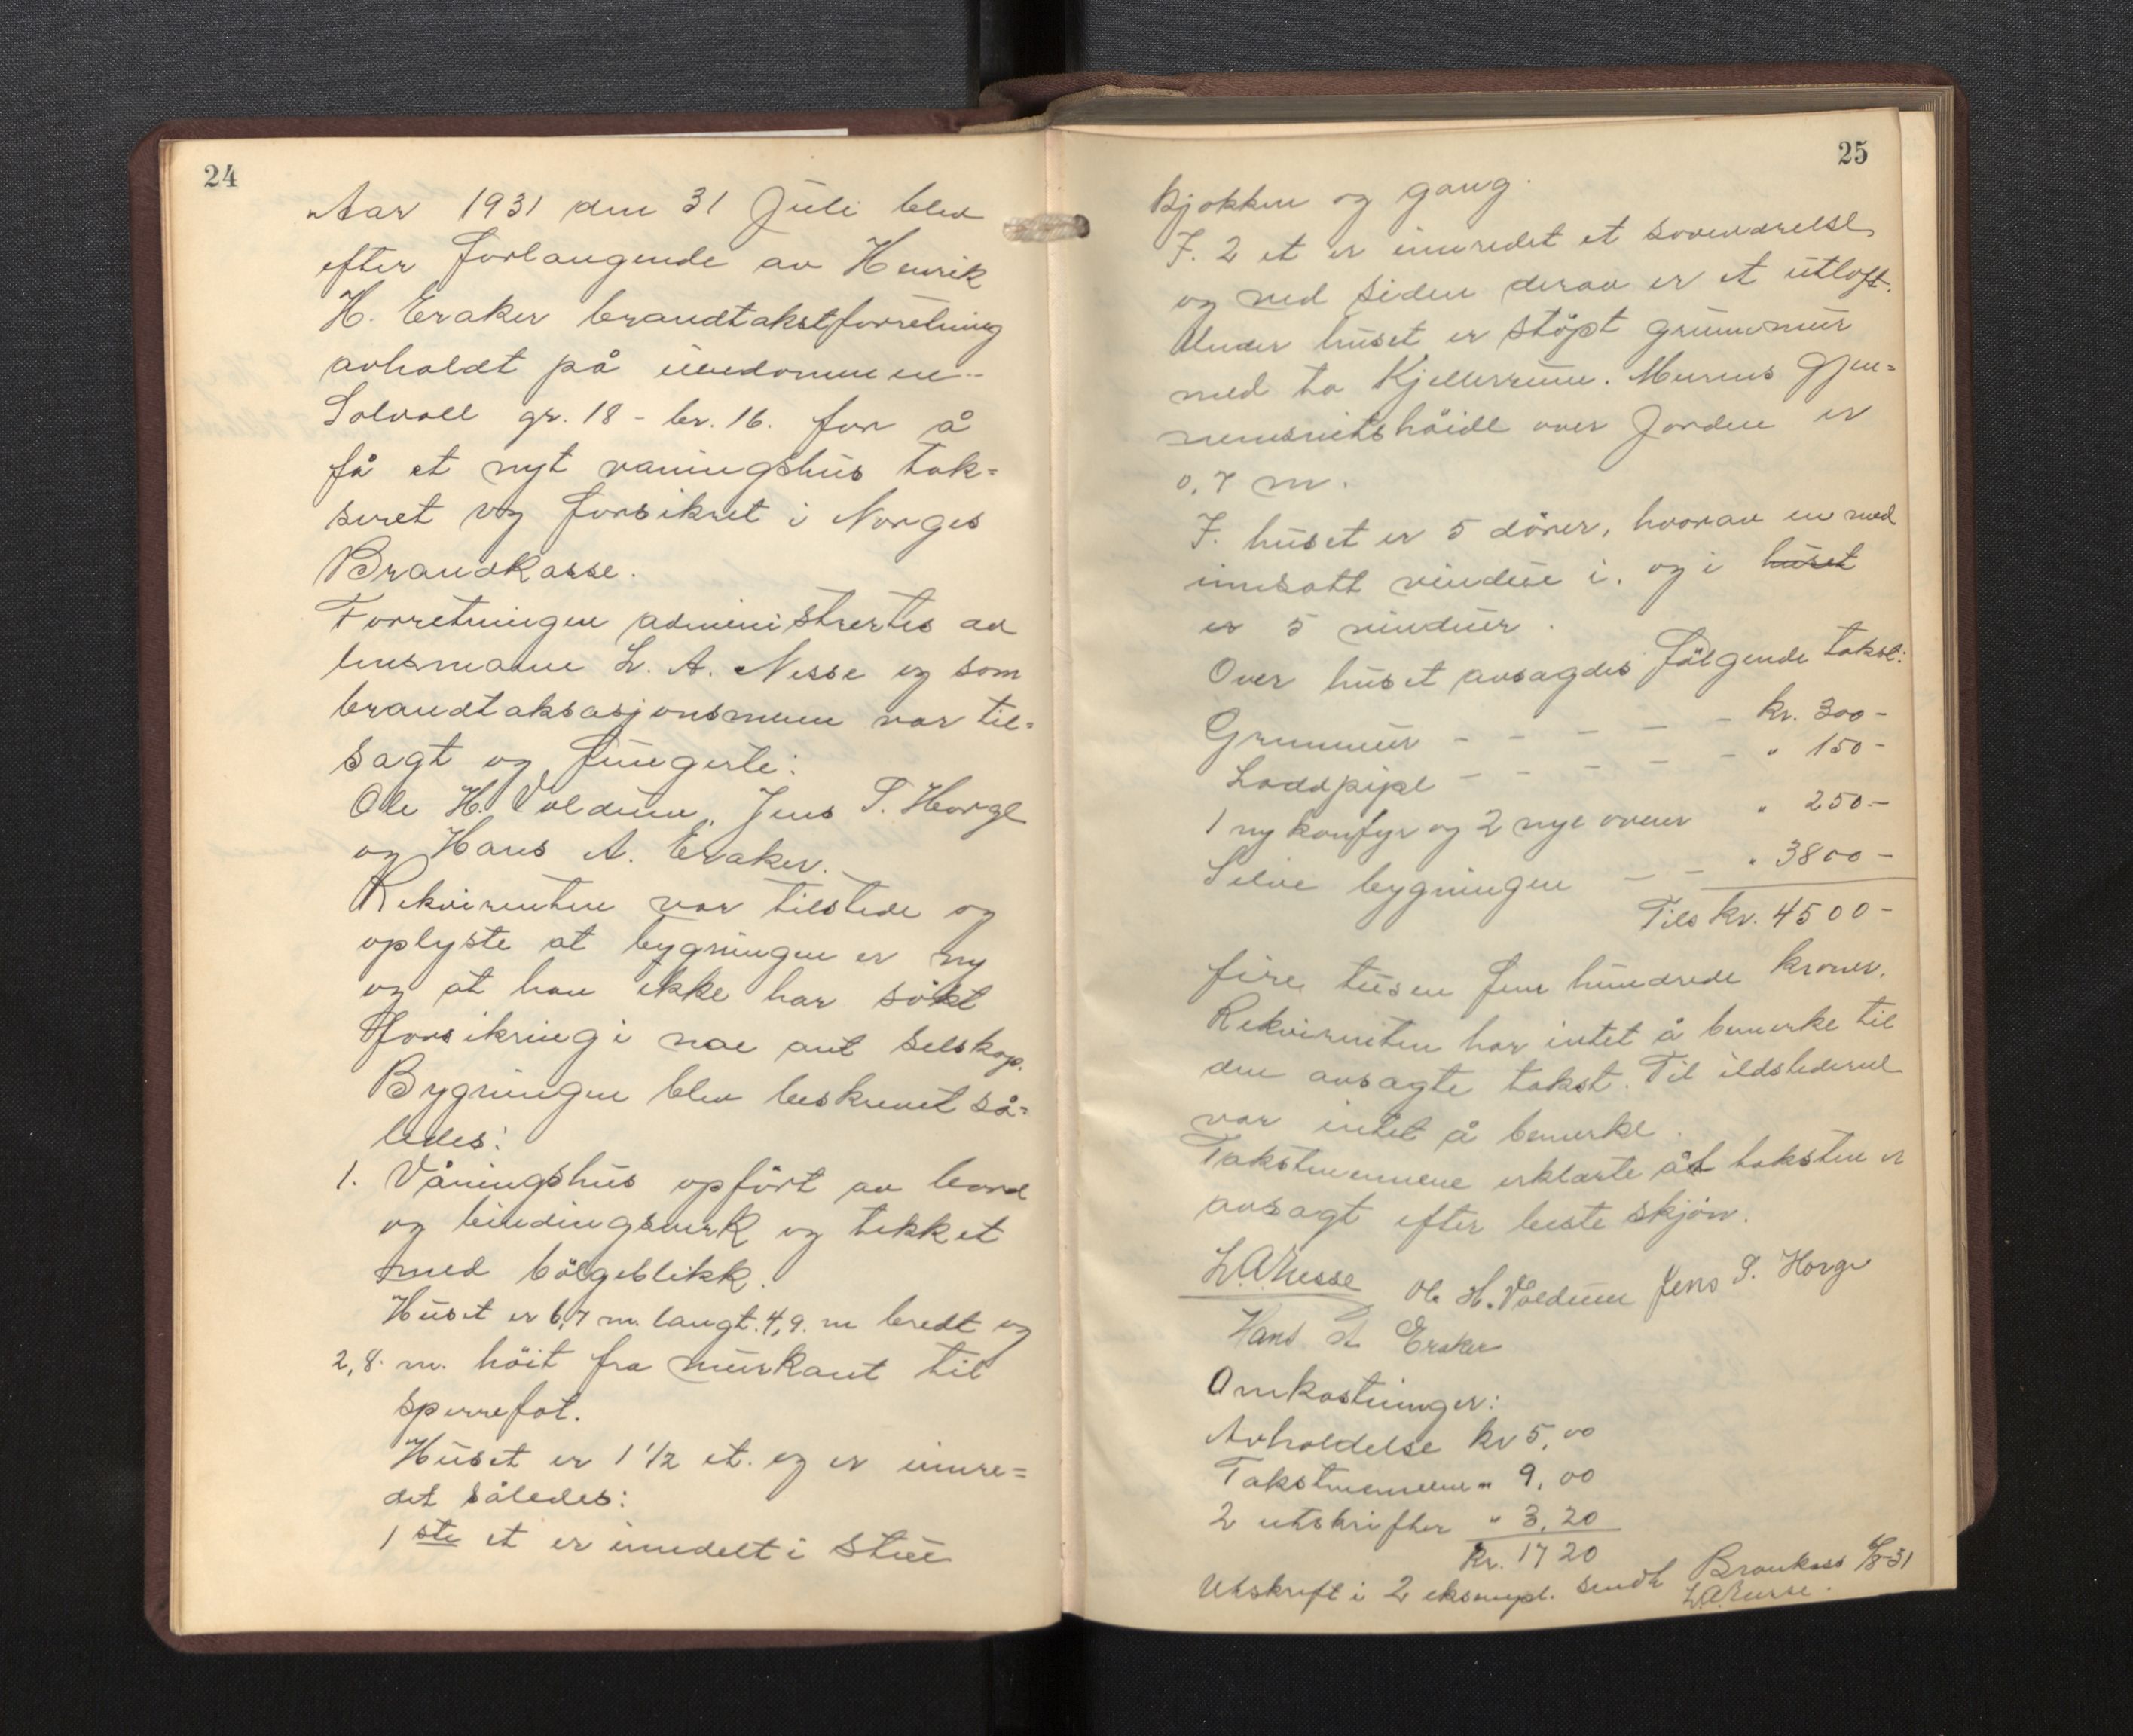 24
Aar 1931 den 31 Juli blev
efter forlangende av Henrik
H. Eraker brandtakstforretning
avholdt på eiendommen
Solvoll gr. 18 - br. 16. for å
få et nyt vaningshus tak=
seret og forsikret i Norges
Brandkasse.
Forretningen administrertes av
lensmann L. A. Nesse og som
brandtaksasjonsmenn var til=
sagt og fungerte:
Ole H. Voldum, Jens P. Horge
og Hans A. Eraker.
Rekvirenten var tilstede og
oplyste at bygningen er ny
og at han ikke har søkt
forsikring i noe ant selskap.
Bygningen blev beskrevet så=
ledes:
1. Våningshus opført av bord
og bindingsverk og tekket
med bølgeblikk.
Huset er 6,7 m. langt. 4,9. m bredt og
2,8. m. høit fra murkant til
sperrefot.
Huset er 1 1/2 et. og er innre=
det således:
1 ste et er inndelt i stue
25
kjøkken og gang.
I. 2 et er innredet et soveværelse
og ved siden derav er et utloft.
Under huset er støpt grunnmur
med to kjellerrum. Murens gjen=
nemsnitshøide over jorden er
0,7 m.
I. huset er 5 dører, hvorav en med
innsatt vindue i. og i huset
er 5 vinduer.
Over huset avsagdes følgende takst:
Grunnmur - - - - - kr. 300-
Loddpipe - - - - - " 150-
1 ny komfyr og 2 nye ovner " 250-
Selve bygningen - - " 3800-
Tils kr. 4500-
fire tusen fem hundrede kroner.
Rekvirenten har intet å bemerke til
den avsagte takst. Til ildstederne
var intet å bemerke.
Takstmennene erklærte åt taksten er
avsagt efter beste skjøn.
L.A.Nesse Ole H. Voldum Jens P. Horge
Hans A Eraker
Omkostninger:
Avholdelse kr 5,00
Takstmennene " 9,00
2 utskrifter " 3,20
Kr. 17 20
Utskrift i 2 eksempl. sendt Brankass 6/8-31
L.A.Nesse.